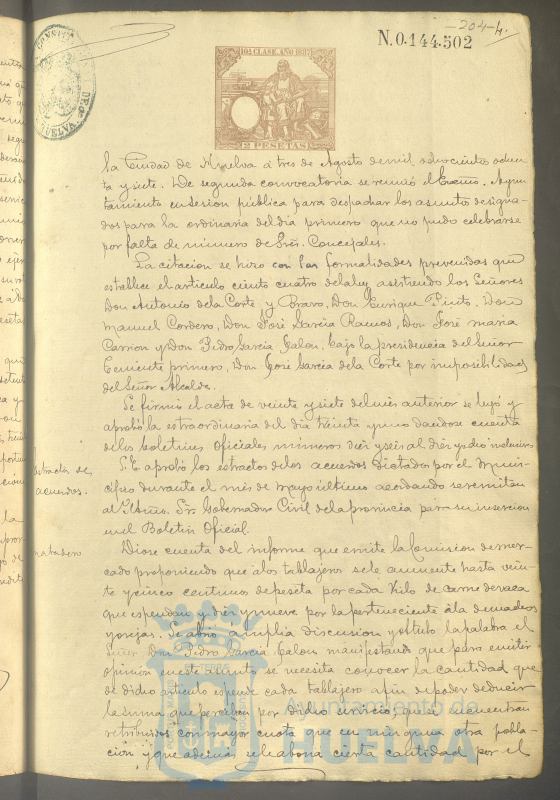 -204-4.
N.0.144.502
10ª CLASE. AÑO 1887
2 PESETAS
la Ciudad de Huelva á tres de Agosto de mil ochocientos ochen
ta y siete. De segunda convocatoria se reunió el Excmo. Ayun
tamiento en sesion pública para despachar los asuntos designa
dos para la ordinaria del dia primero que no pudo celebrarse
por falta de número de Sres. Concejales.
La citacion se hizo con las formalidades prevenidas que
establece el articulo ciento cuatro de la ley asistiendo los Señores
Don Antonio de la Corte y Bravo, Don Enrique Pinto, Don
Manuel Cordero, Don José Garcia Ramos, Don José maria
Carrion y Don Pedro Garcia Jalon, bajo la presidencia del Señor
Teniente primero, Don José Garcia de la Corte por imposibilidad
del Señor Alcalde.
Se firmó el acta de veinte y siete del mes anterior se leyó y
aprobó la extraordinaria del dia treinta y uno dandose cuenta
de los boletines oficiales números diez y seis al diez y ocho inclusives
Se aprobó los estractos de los acuerdos dictados por el Muni
cipio durante el mes de Mayo último acordando se remitan
al Sr. Gobernador Civil de la provincia para su insercion
en el Boletin Oficial.
Estractos de
acuerdos.
Diose cuenta del informe que emite la Comision de mer
cado proponiendo que á los tablajeros se le aumente hasta vein
te y cinco centimos de peseta por cada Kilo de carne de vaca
que espendan y diez y nueve por la perteneciente á la de machos
y ovejas. Se abrió amplia discusion y obtubo la palabra el
Señor Don Pedro Garcia Jalon manifestando que para emitir
opinion en este asunto se necesita conocer la cantidad que
de dicho articulo espende cada tablajero a fin de poder deducir
la suma que perciben por dicho servicio, pues se encuentran
retribuidos con mayor cuota que en ninguna otra pobla
cion y que ademas se le abona cierta cantidad por el
matadero
Ayuntamiento de
HUELVA